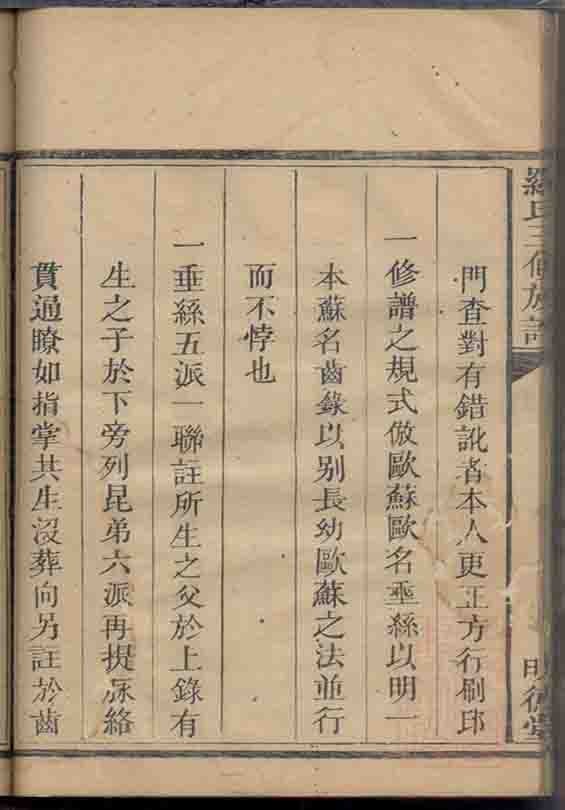 羅氏三修族譜
明德堂
門查對有錯訛者本人更正方行刷印
一修譜之規式倣歐蘇歐名垂絲以明一
本蘇名齒錄以别長幼歐蘇之法並行
而不悖也
一垂絲五派一聯註所生之父於上錄有
生之子於下旁列昆弟六派再提脉絡
貫通瞭如指掌其生沒葬向另註於齒